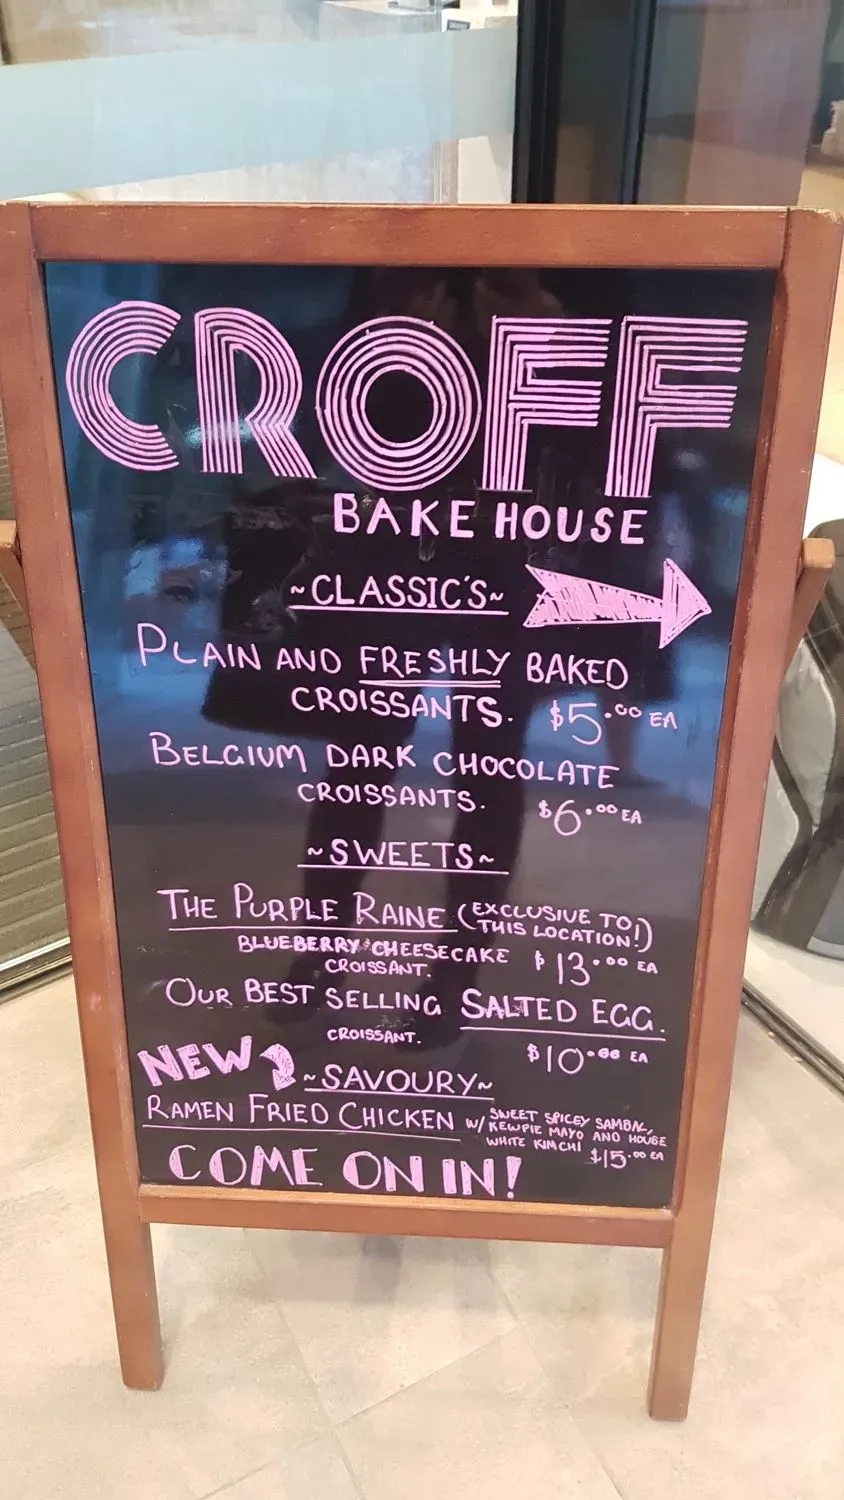 CROFF
BAKE HOUSE
~CLASSIC'S~
PLAIN AND FRESHLY BAKED
CROISSANTS. $5.00 EA
BELGIUM DARK CHOCOLATE
CROISSANTS. $6.00 EA
~SWEETS~
THE PURPLE RAINE (EXCLUSIVE TO
THIS LOCATION!)
BLUEBERRY CHEESECAKE
CROISSANT. $13.00 EA
OUR BEST SELLING SALTED EGG.
CROISSANT. $10.00 EA
NEW
~SAVOURY~
RAMEN FRIED CHICKEN W/ SWEET SPICEY SAMBAL,
KEWPIE MAYO AND HOUSE
WHITE KIMCHI $15.00 EA
COME ON IN!